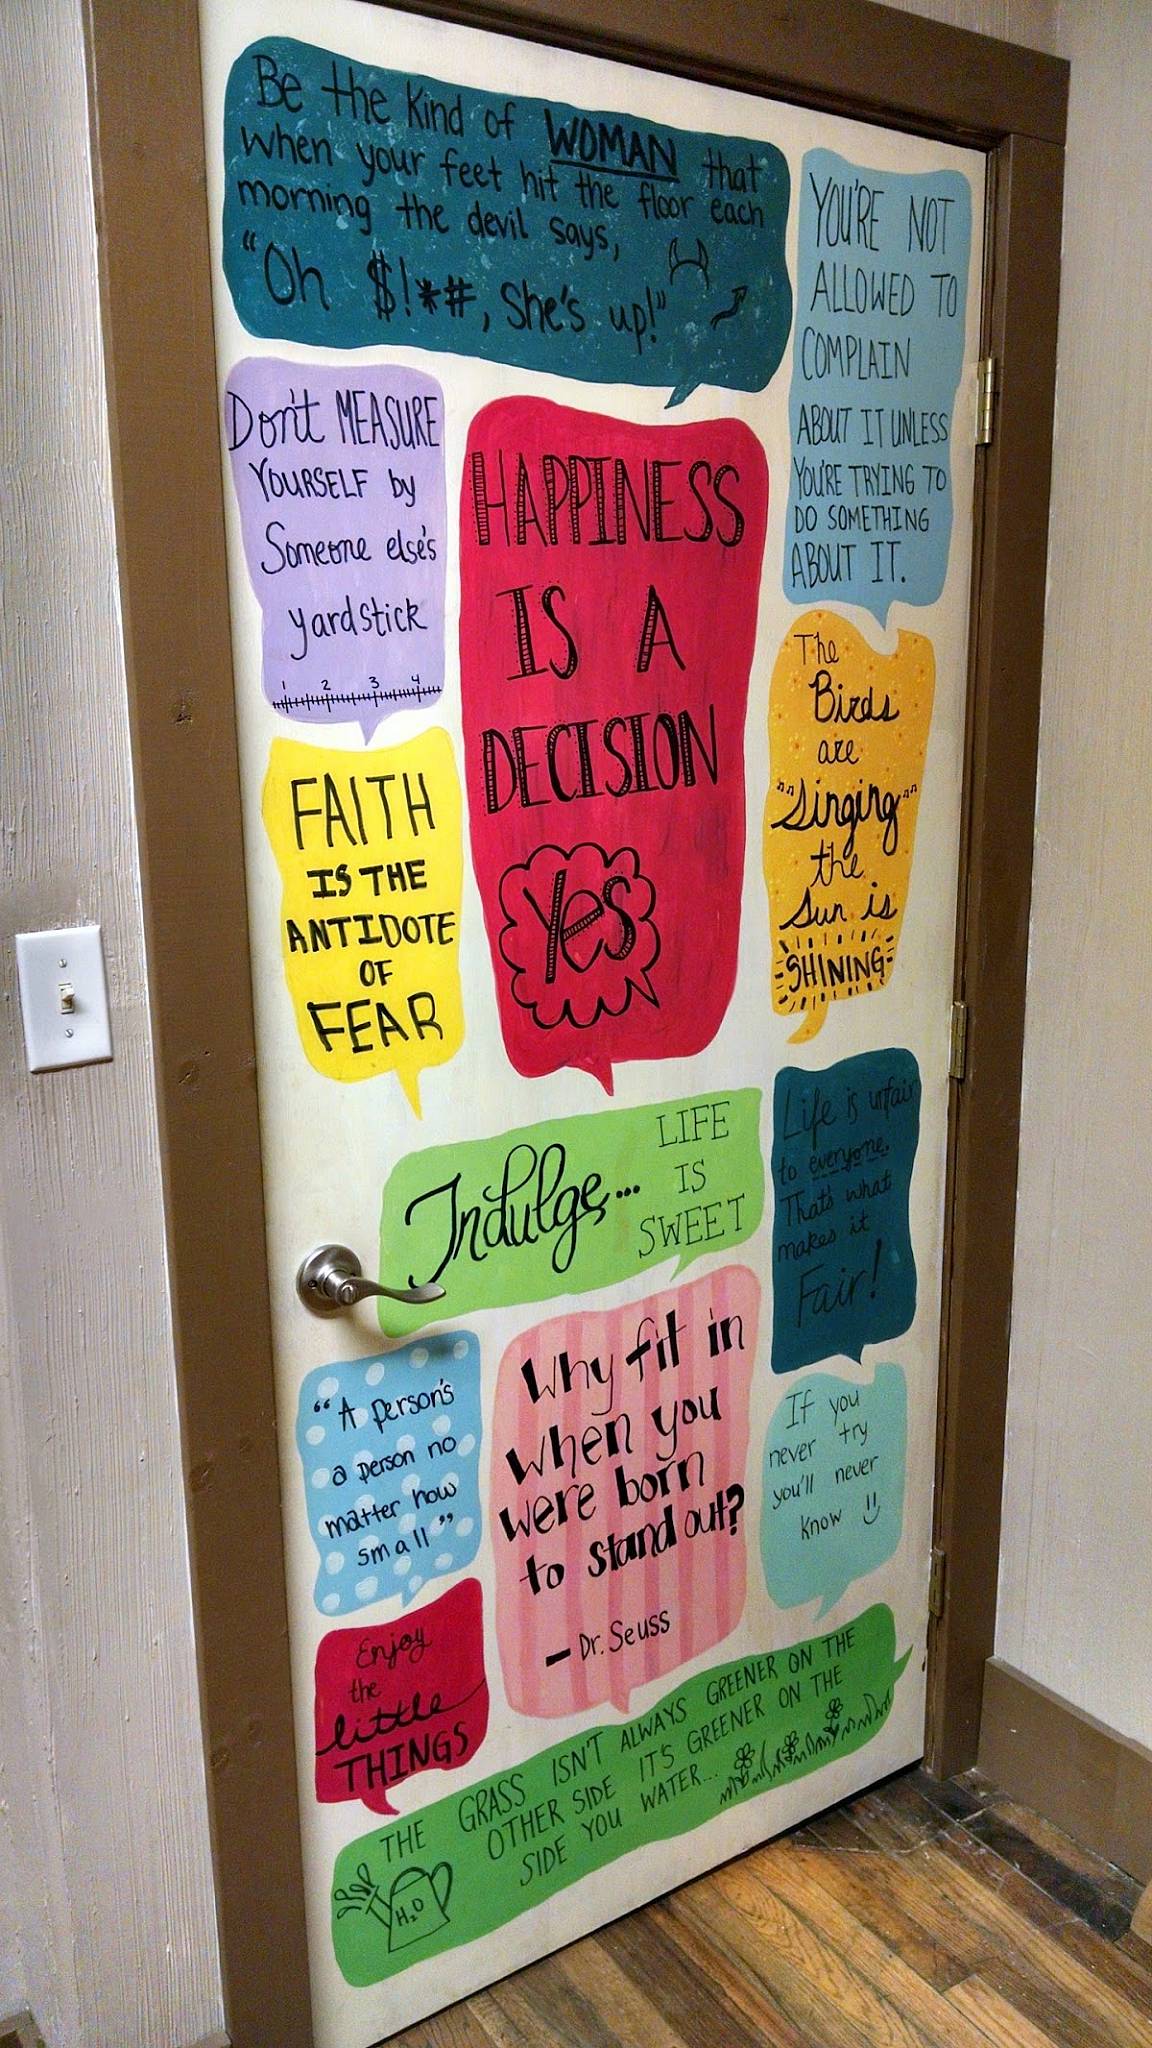 Be the kind of WOMAN that
when your feet hit the floor each
morning the devil says,
"Oh $!*#, She's up!"
YOU'RE NOT
ALLOWED TO
COMPLAIN
ABOUT IT UNLESS
YOU'RE TRYING TO
DO SOMETHING
ABOUT IT.
Don't MEASURE
YOURSELF by
Someone else's
yardstick
1 2 3 4
HAPPINESS
IS A
DECISION
Yes
The
Birds
are
"Singing"
the
Sun is
SHINING
FAITH
IS THE
ANTIDOTE
OF
FEAR
Indulge...
LIFE
IS
SWEET
Life is unfair
to everyone.
That's what
makes it
Fair!
"A person's
a person no
matter how
small"
Why fit in
when you
were born
to stand out?
- Dr. Seuss
If you
never try
you'll never
know
Enjoy
the
little
THINGS
THE GRASS ISN'T ALWAYS GREENER ON THE
OTHER SIDE IT'S GREENER ON THE
SIDE YOU WATER...
H2O